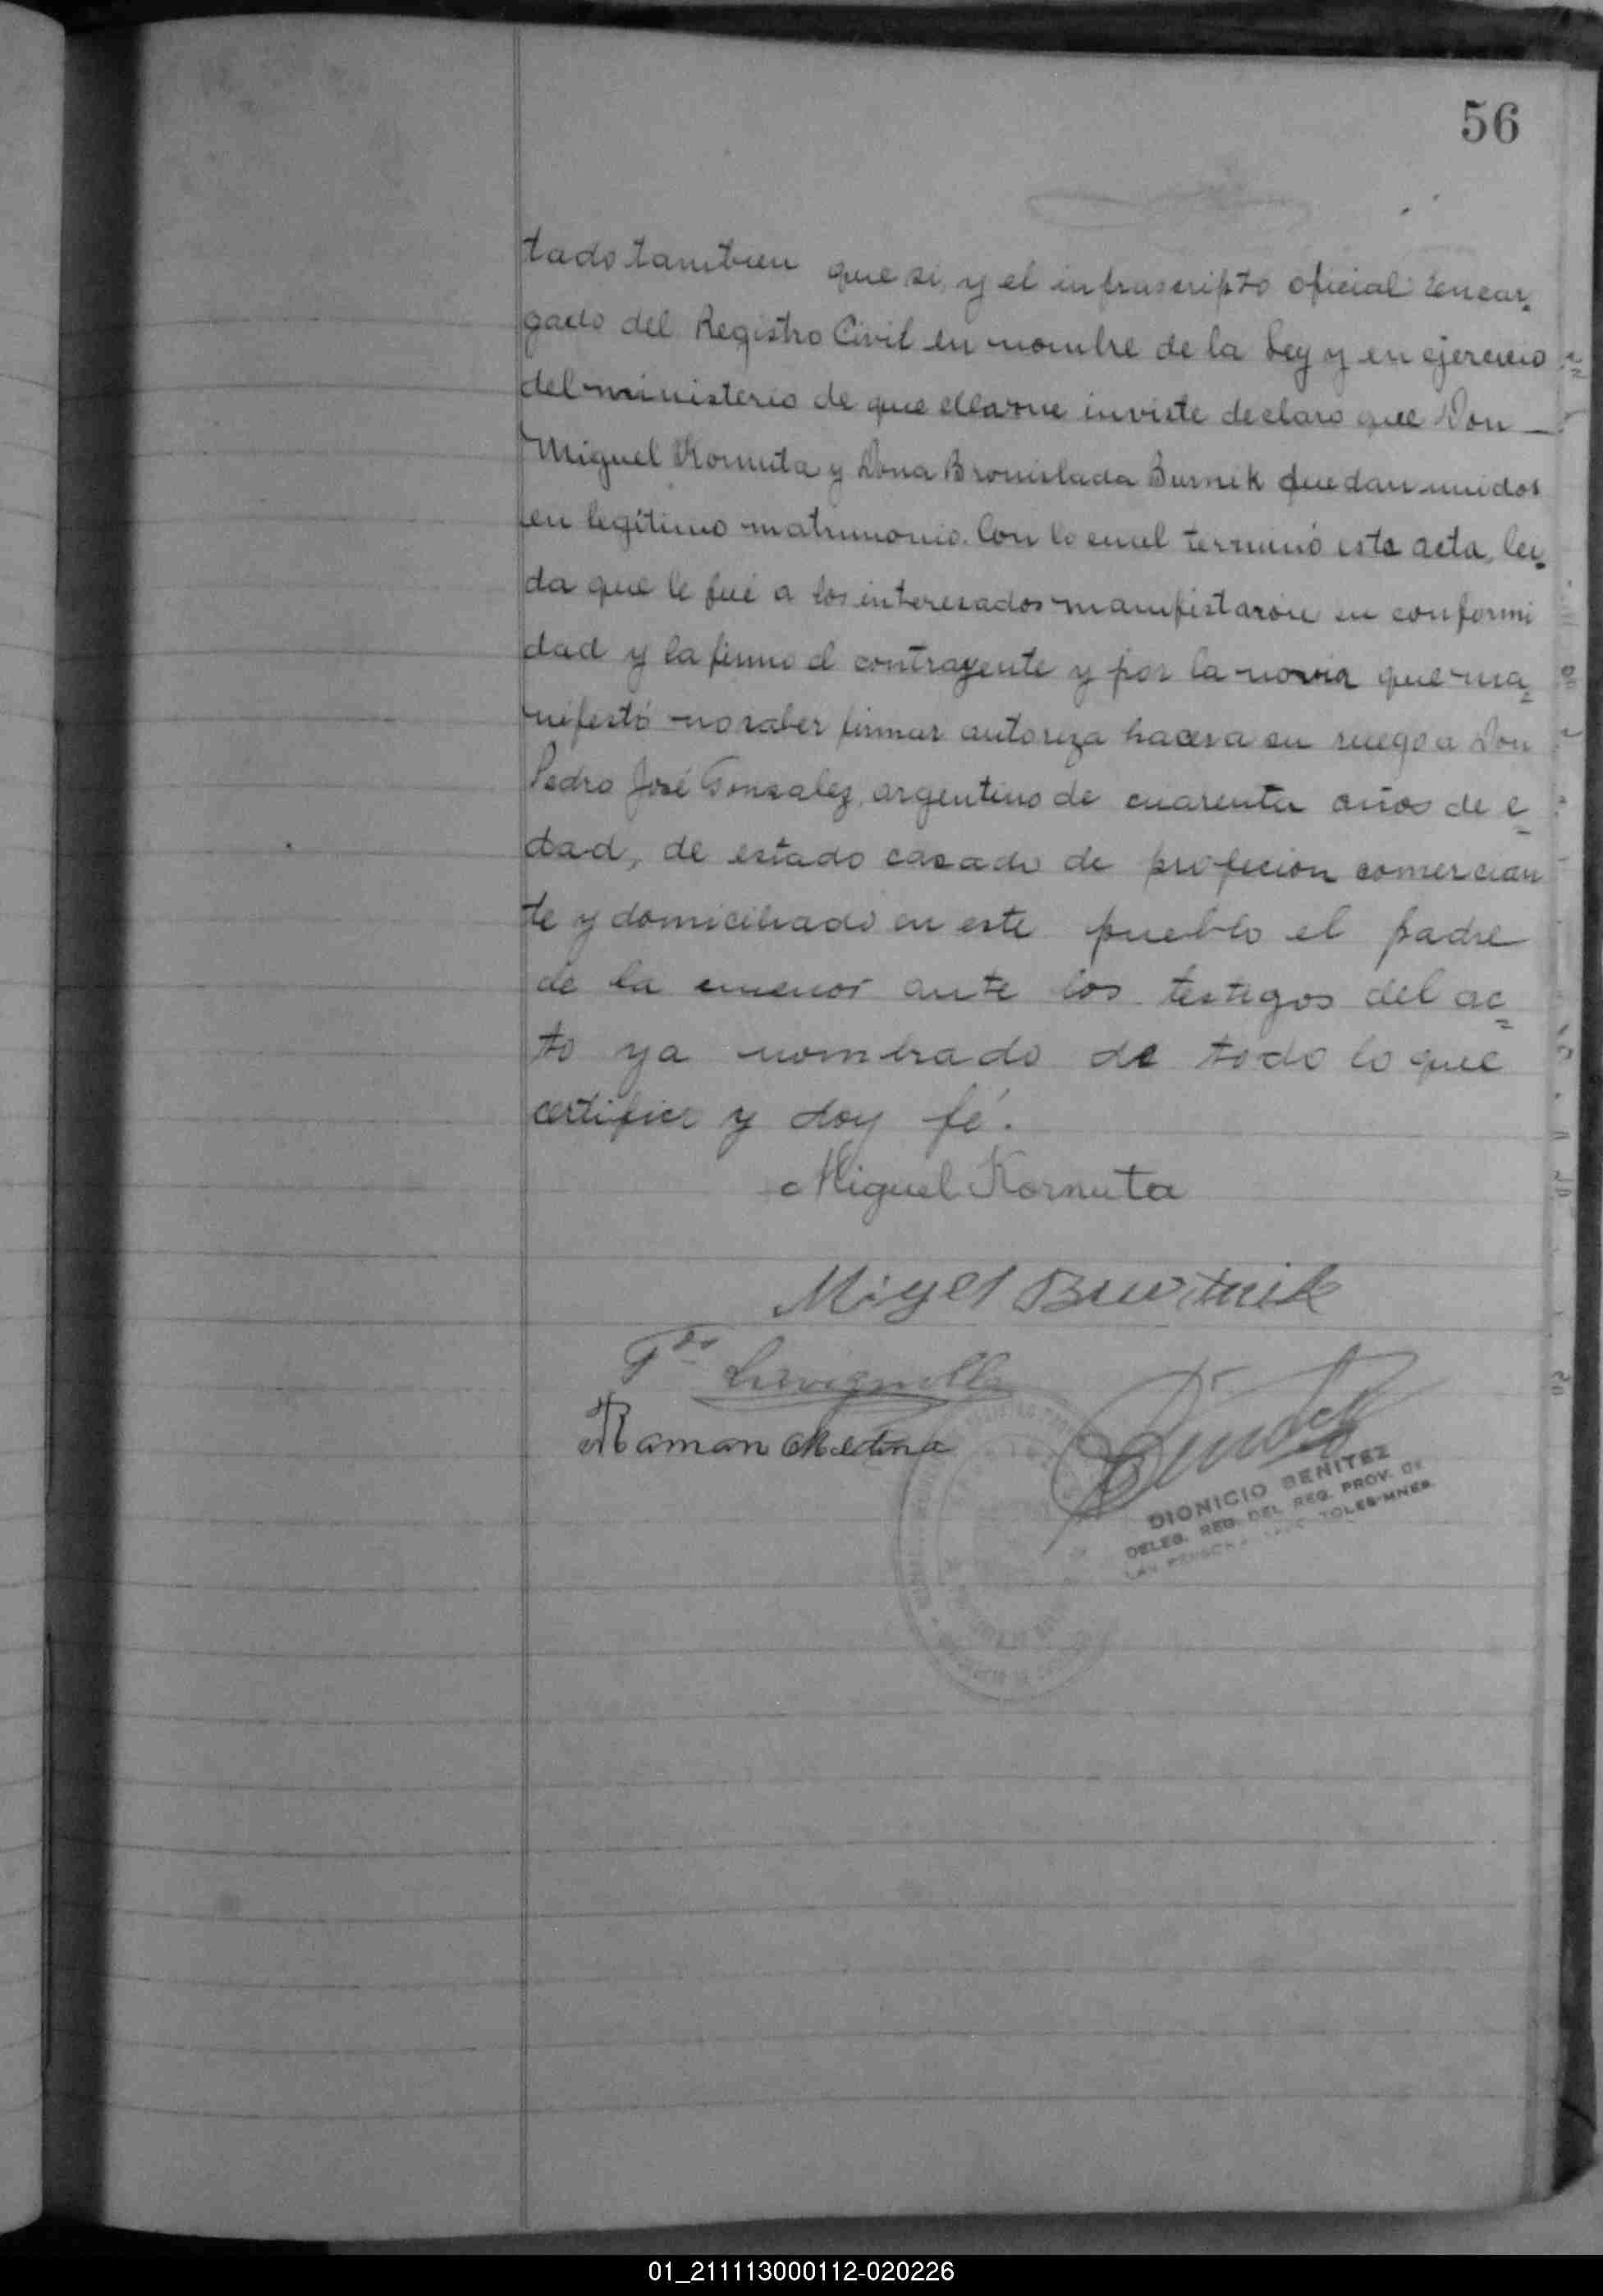 56
tado tambien que si, y el infrascripto oficial encar=
gado del Registro Civil en nombre de la Ley y en ejercicio
del ministerio de que ella me inviste declaro que Don —
Miguel Kornuta y Dona Bronislada Burnik quedan unidos
en legítimo matrimonio. Con lo cual terminó esta acta, lei=
da que le fué a los interesados manifestarón su conformi
dad y la firmo el contrayente y por la novia que ma=
nifestó no saber firmar autoriza hacer a su ruego a Don
Pedro José Gonzalez, argentino de cuarenta años de e=
dad, de estado casado de profecion comercian
te y domiciliado en este pueblo el padre
de la menor ante los testigos del ac=
to ya nombrado de todo lo que
certifico y doy fé.
Miguel Kornuta
Migel
Raman Medina
DIONICIO BENITEZ
DELEG. REG. DEL REG. PROV. DE
LAS TOLES-MNES.
01_211113000112-020226